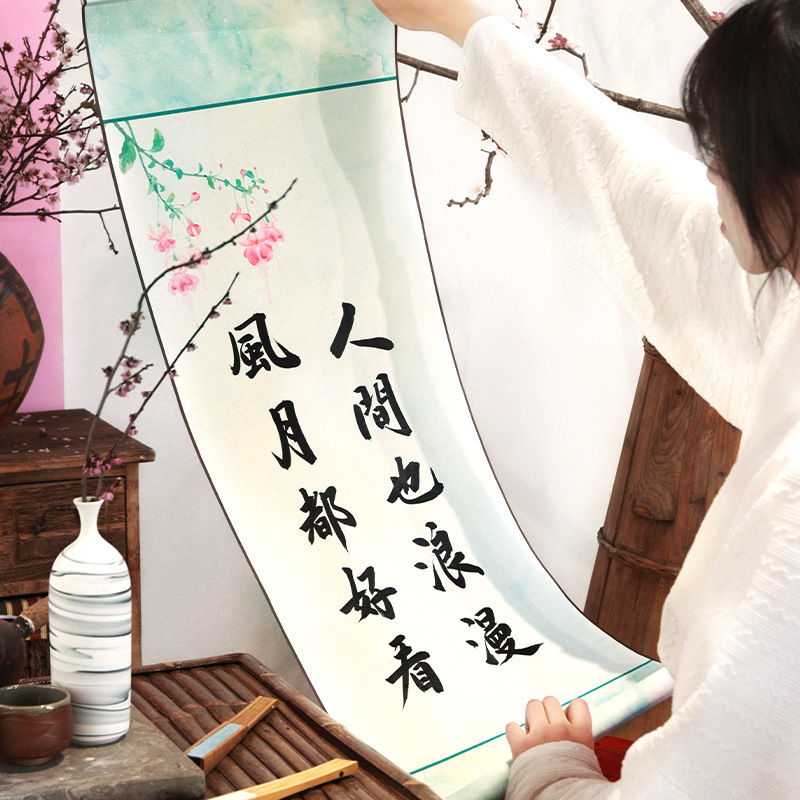 人間也浪漫
風月都好看